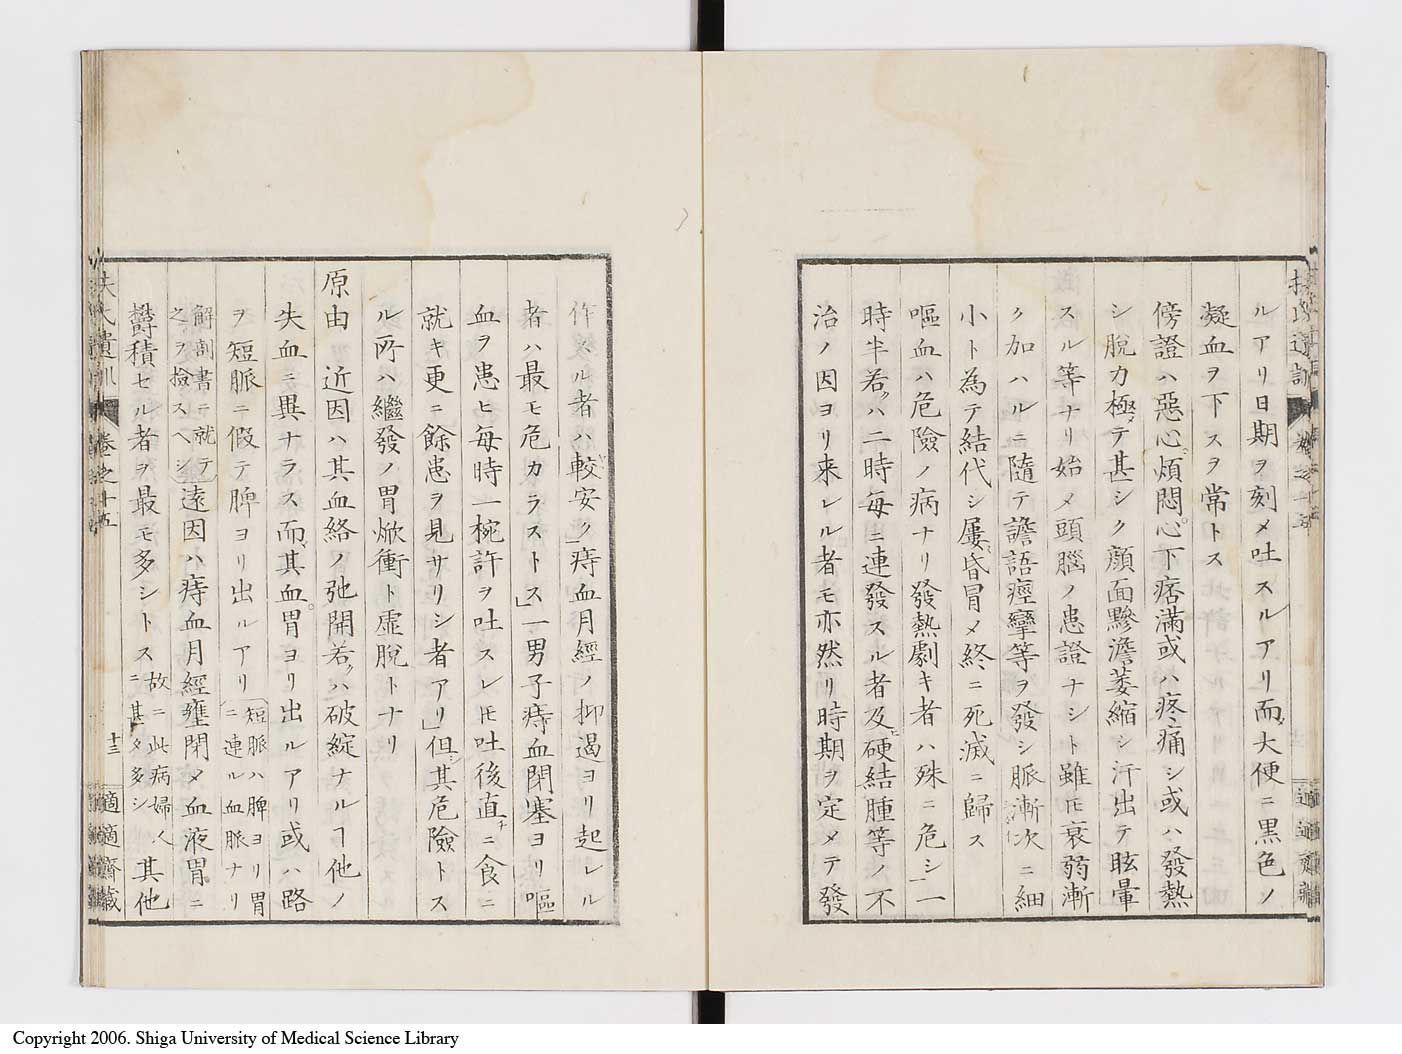 ルアリ日期ヲ刻メ吐スルアリ而大便ニ黒色ノ
凝血ヲ下スヲ常トス
傍證ハ惡心煩悶心下痞滿或ハ疼痛シ或ハ發熱
シ脱力極テ甚シク顔面黪澹萎縮シ汗出テ眩暈
スル等ナリ始メ頭腦ノ患證ナシト雖𪜈衰弱漸
ク加ハルニ隨テ譫語痙攣等ヲ發シ脈漸次ニ細
小ト為テ結代シ屢昏冒メ終ニ死滅ニ歸ス
嘔血ハ危險ノ病ナリ發熱劇キ者ハ殊ニ危シ」一
時半若ハ二時毎ニ連發スル者及硬結腫等ノ不
治ノ因ヨリ来レル者モ亦然リ時期ヲ定メテ發
作スル者ハ較安ク」痔血月經ノ抑遏ヨリ起レル
者ハ最モ危カラストス」一男子痔血閉塞ヨリ嘔
血ヲ患ヒ毎時一椀許ヲ吐スレ𪜈吐後直ニ食ニ
就キ更ニ餘患ヲ見サリシ者アリ」但其危險トス
ル所ハ繼發ノ胃焮衝ト虚脱トナリ
原由 近因ハ其血絡ノ弛開若ハ破綻ナルヿ他ノ
失血ニ異ナラス而其血胃ヨリ出ルアリ或ハ略
ヲ短脈ニ假テ脾ヨリ出ルアリ
短脈ハ脾ヨリ胃
ニ連ル血脈ナリ
解剖書ニ就テ
之ヲ撿スヘシ
遠因ハ痔血月經壅閉メ血液胃ニ
鬱積セル者ヲ最モ多シトス
故ニ此病婦人
ニ甚タ多シ
其他
扶氏遺訓
卷之十五
十三
適適齋藏
Copyright 2006. Shiga University of Medical Science Library